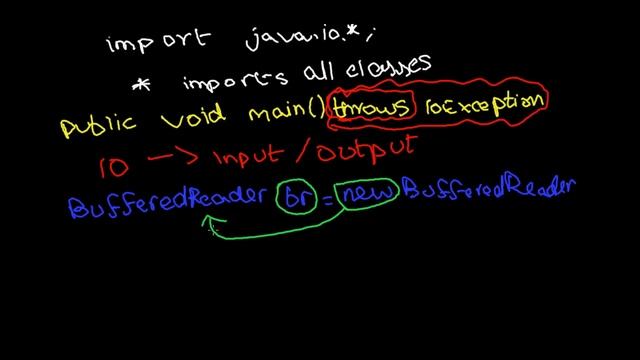 import java.io.*;
* imports all classes
public void main() throws IoException
IO -> Input / Output
BufferedReader br = new BufferedReader